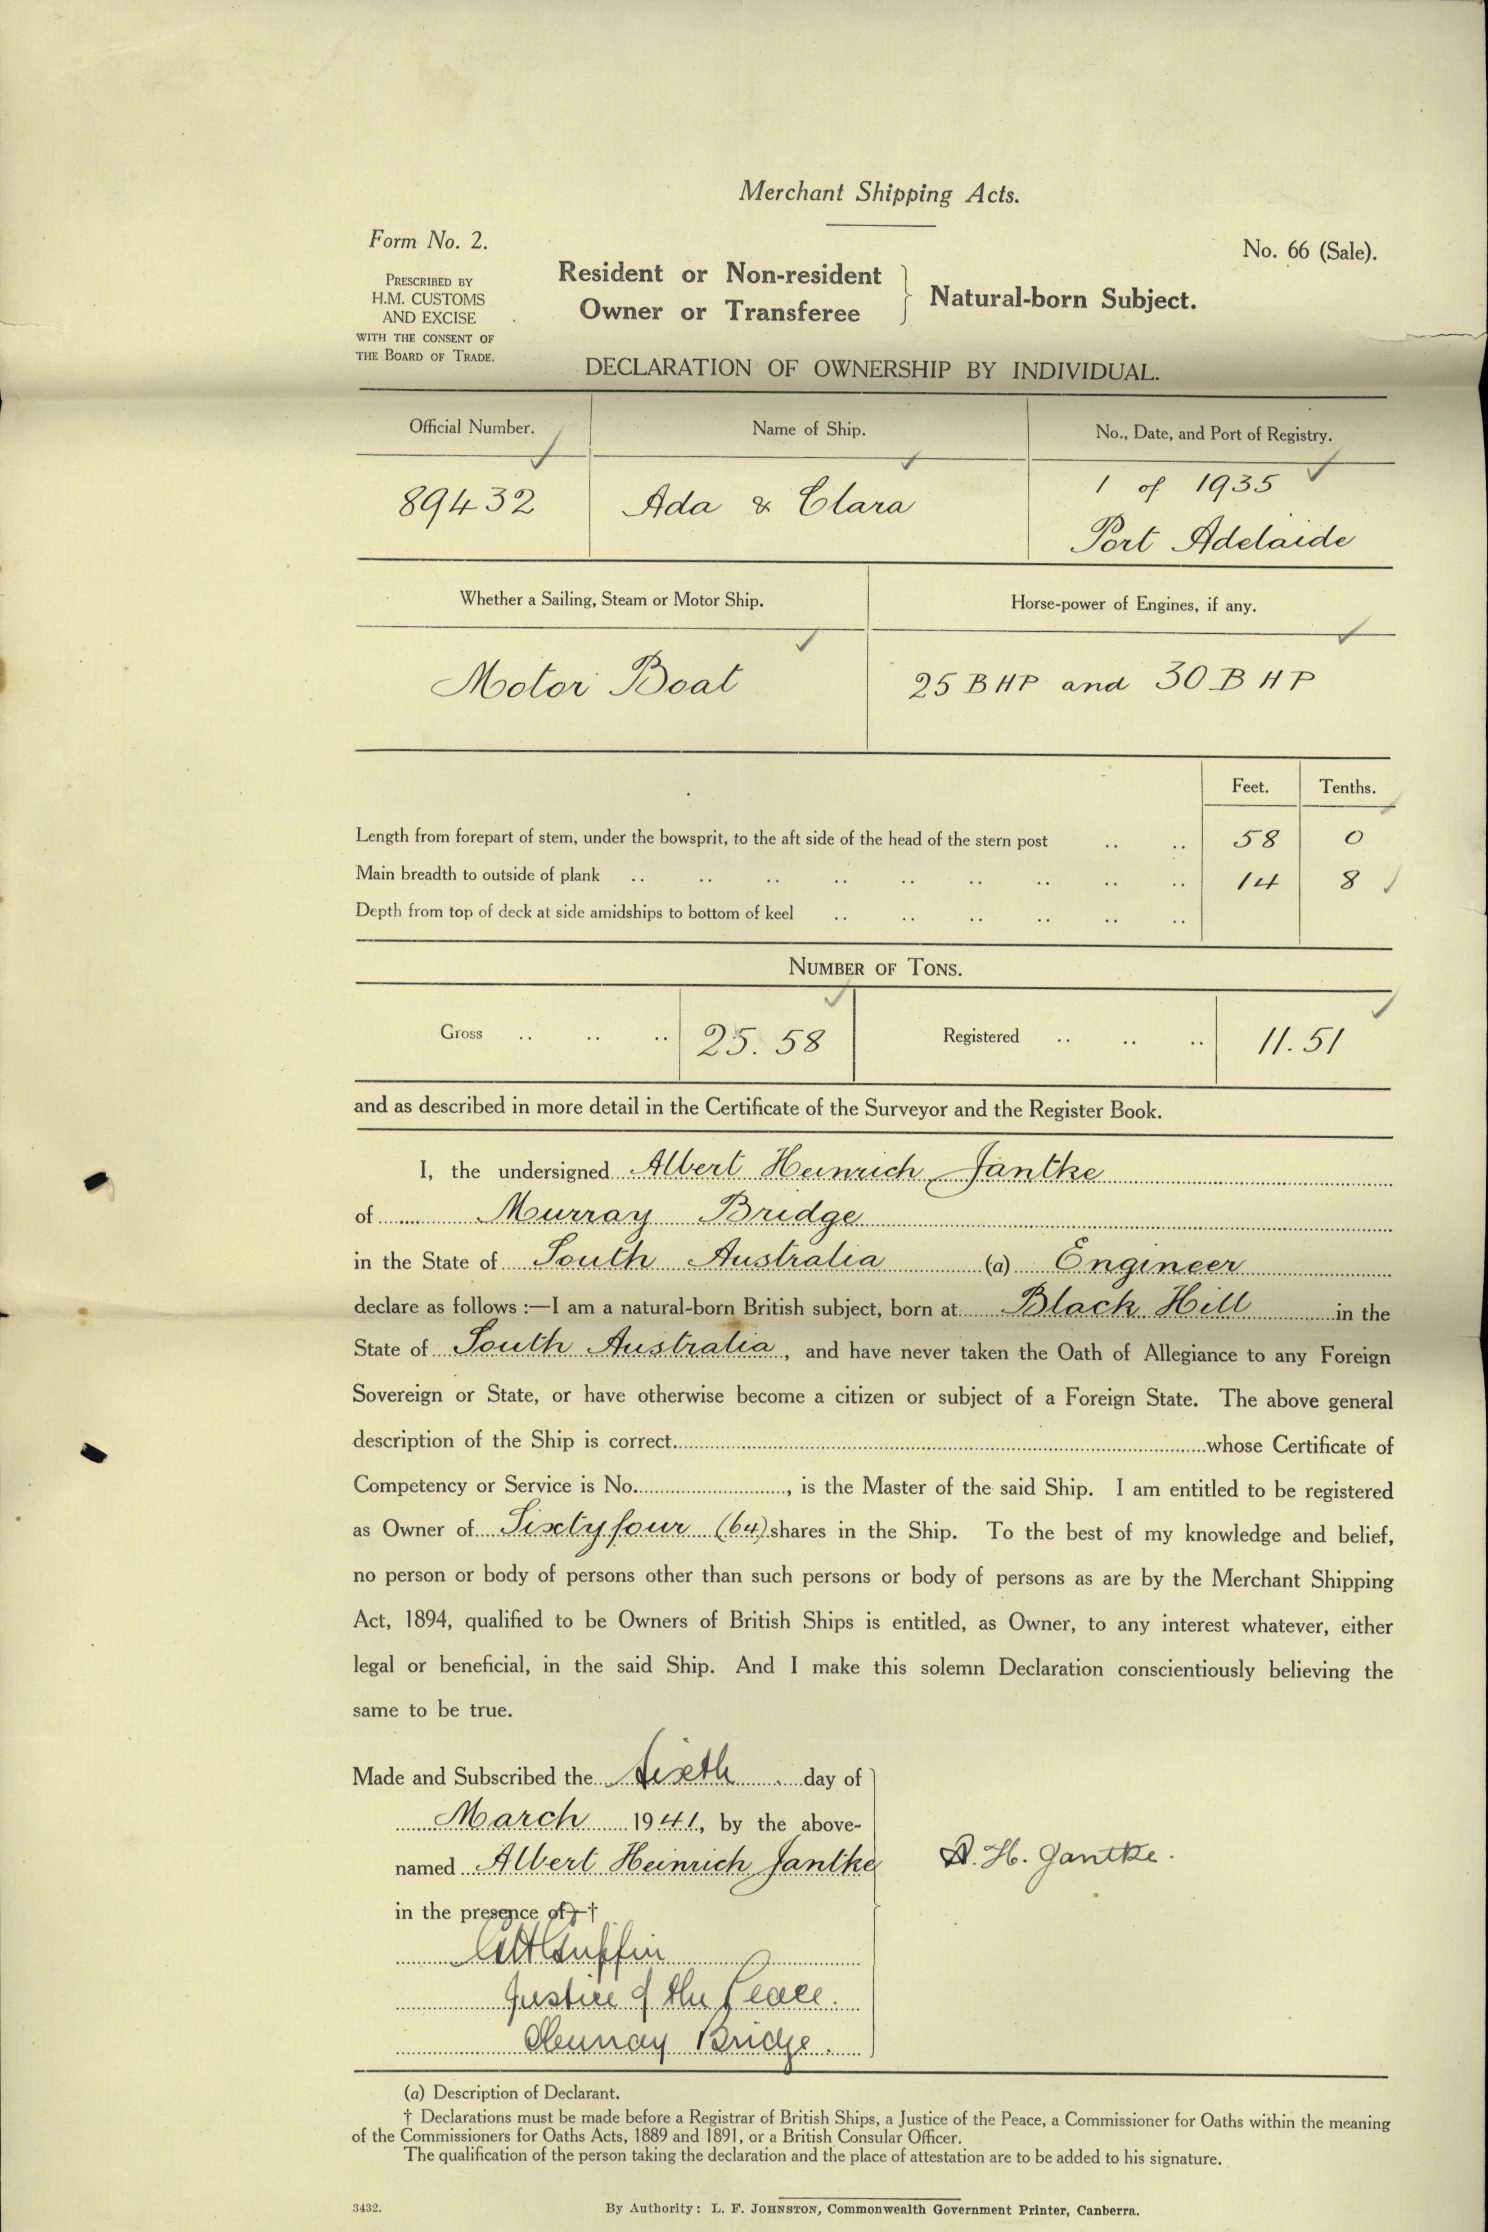 Merchant Shipping Acts.
Form No. 2.
No. 66 (Sale).
PRESCRIBED BY
H.M. CUSTOMS
AND EXCISE
WITH THE CONSENT OF
THE BOARD OF TRADE.
Resident or Non-resident
Owner or Transferee } Natural-born Subject.
DECLARATION OF OWNERSHIP BY INDIVIDUAL.
Official Number. Name of Ship. No., Date, and Port of Registry.
89432 Ada & Clara 1 of 1935
Port Adelaide
Whether a Sailing, Steam or Motor Ship. Horse-power of Engines, if any.
Motor Boat 25 BHP and 30 BHP
Feet. Tenths.
Length from forepart of stem, under the bowsprit, to the aft side of the head of the stern post .. .. 58 0
Main breadth to outside of plank .. .. .. .. .. .. .. .. .. 14 8
Depth from top of deck at side amidships to bottom of keel .. .. .. .. .. ..
NUMBER OF TONS.
Gross .. .. .. 25.58 Registered .. .. .. 11.51
and as described in more detail in the Certificate of the Surveyor and the Register Book.
I, the undersigned Albert Heinrich Jantke
of Murray Bridge
in the State of South Australia (a) Engineer
declare as follows :—I am a natural-born British subject, born at Black Hill in the
State of South Australia, and have never taken the Oath of Allegiance to any Foreign
Sovereign or State, or have otherwise become a citizen or subject of a Foreign State. The above general
description of the Ship is correct. whose Certificate of
Competency or Service is No. , is the Master of the said Ship. I am entitled to be registered
as Owner of Sixty four (64) shares in the Ship. To the best of my knowledge and belief,
no person or body of persons other than such persons or body of persons as are by the Merchant Shipping
Act, 1894, qualified to be Owners of British Ships is entitled, as Owner, to any interest whatever, either
legal or beneficial, in the said Ship. And I make this solemn Declaration conscientiously believing the
same to be true.
Made and Subscribed the Sixth day of
March 1941, by the above-
named Albert Heinrich Jantke
A. H. Jantke.
in the presence of †
Griffin
Justice of the Peace.
Murray Bridge.
(a) Description of Declarant.
† Declarations must be made before a Registrar of British Ships, a Justice of the Peace, a Commissioner for Oaths within the meaning
of the Commissioners for Oaths Acts, 1889 and 1891, or a British Consular Officer.
The qualification of the person taking the declaration and the place of attestation are to be added to his signature.
3432.
By Authority: L. F. JOHNSTON, Commonwealth Government Printer, Canberra.